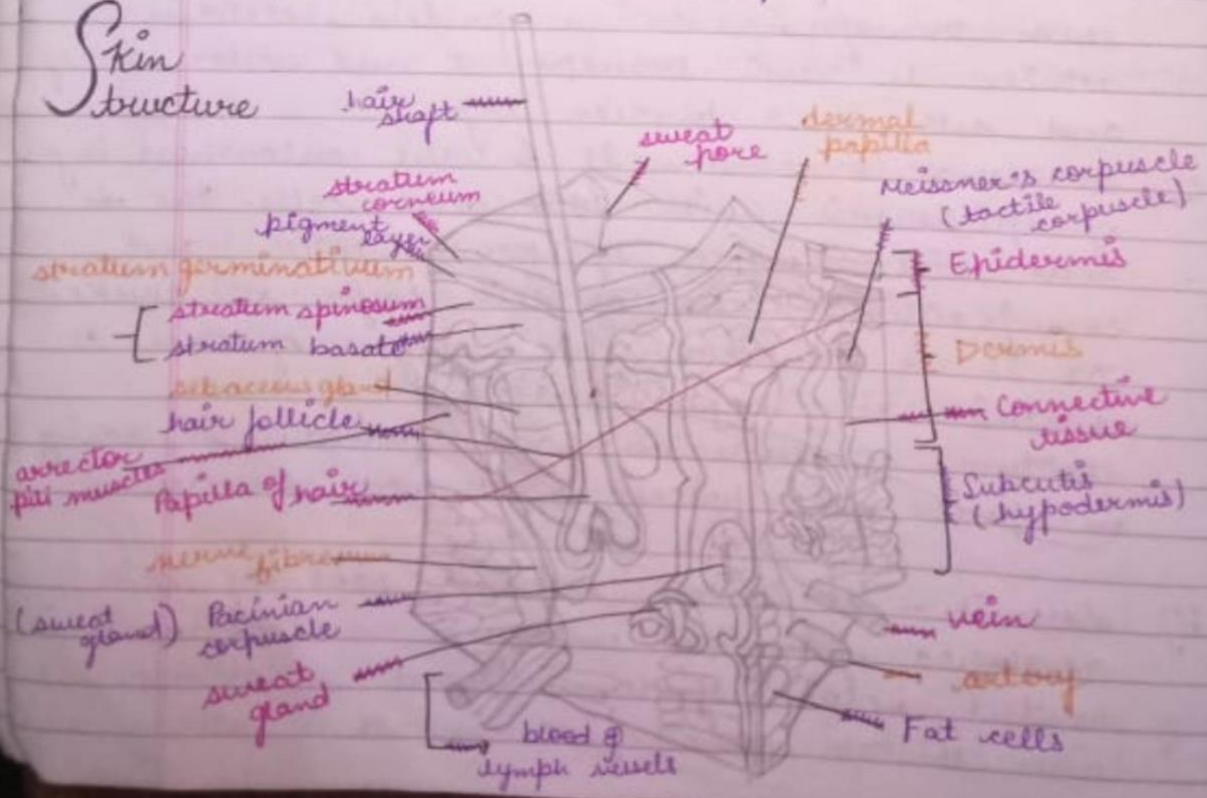 Skin
Structure
hair
shaft
sweat
pore
dermal
papilla
Meissner's corpuscle
(tactile
corpuscle)
stratum
corneum
pigment
layer
stratum germinativum
stratum spinosum
stratum basate
sebaceous gland
hair follicle
arrector
pili muscles
Papilla of hair
nerve fibre
(sweat
gland)
Pacinian
corpuscle
sweat
gland
blood &
lymph vessels
Epidermis
Dermis
Connective
tissue
Subcutis
(hypodermis)
vein
artery
Fat cells